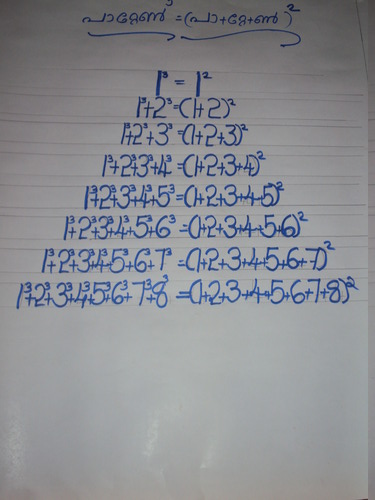 പാറ്റേൺ³ = (പാ+റ്റേ+ൺ)²
1³ = 1²
1³+2³=(1+2)²
1³+2³+3³=(1+2+3)²
1³+2³+3³+4³=(1+2+3+4)²
1³+2³+3³+4³+5³=(1+2+3+4+5)²
1³+2³+3³+4³+5³+6³=(1+2+3+4+5+6)²
1³+2³+3³+4³+5³+6³+7³=(1+2+3+4+5+6+7)²
1³+2³+3³+4³+5³+6³+7³+8³=(1+2+3+4+5+6+7+8)²